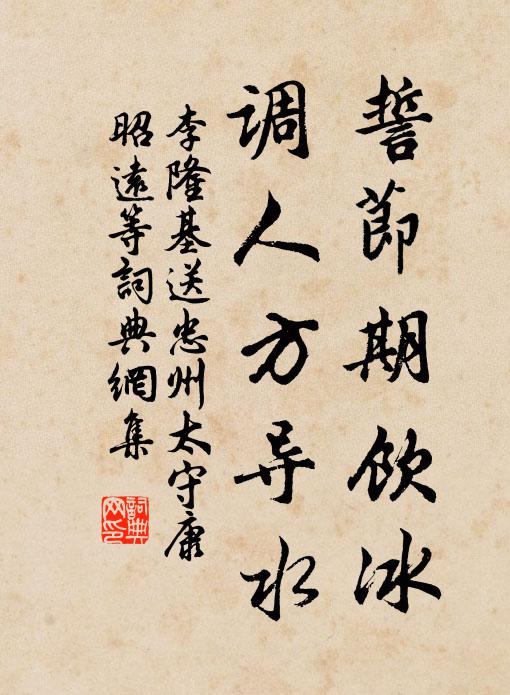 誓節期飲冰
调人方导水
李隆基送忠州太守康
昭遠等詞典網集
詞典
网印